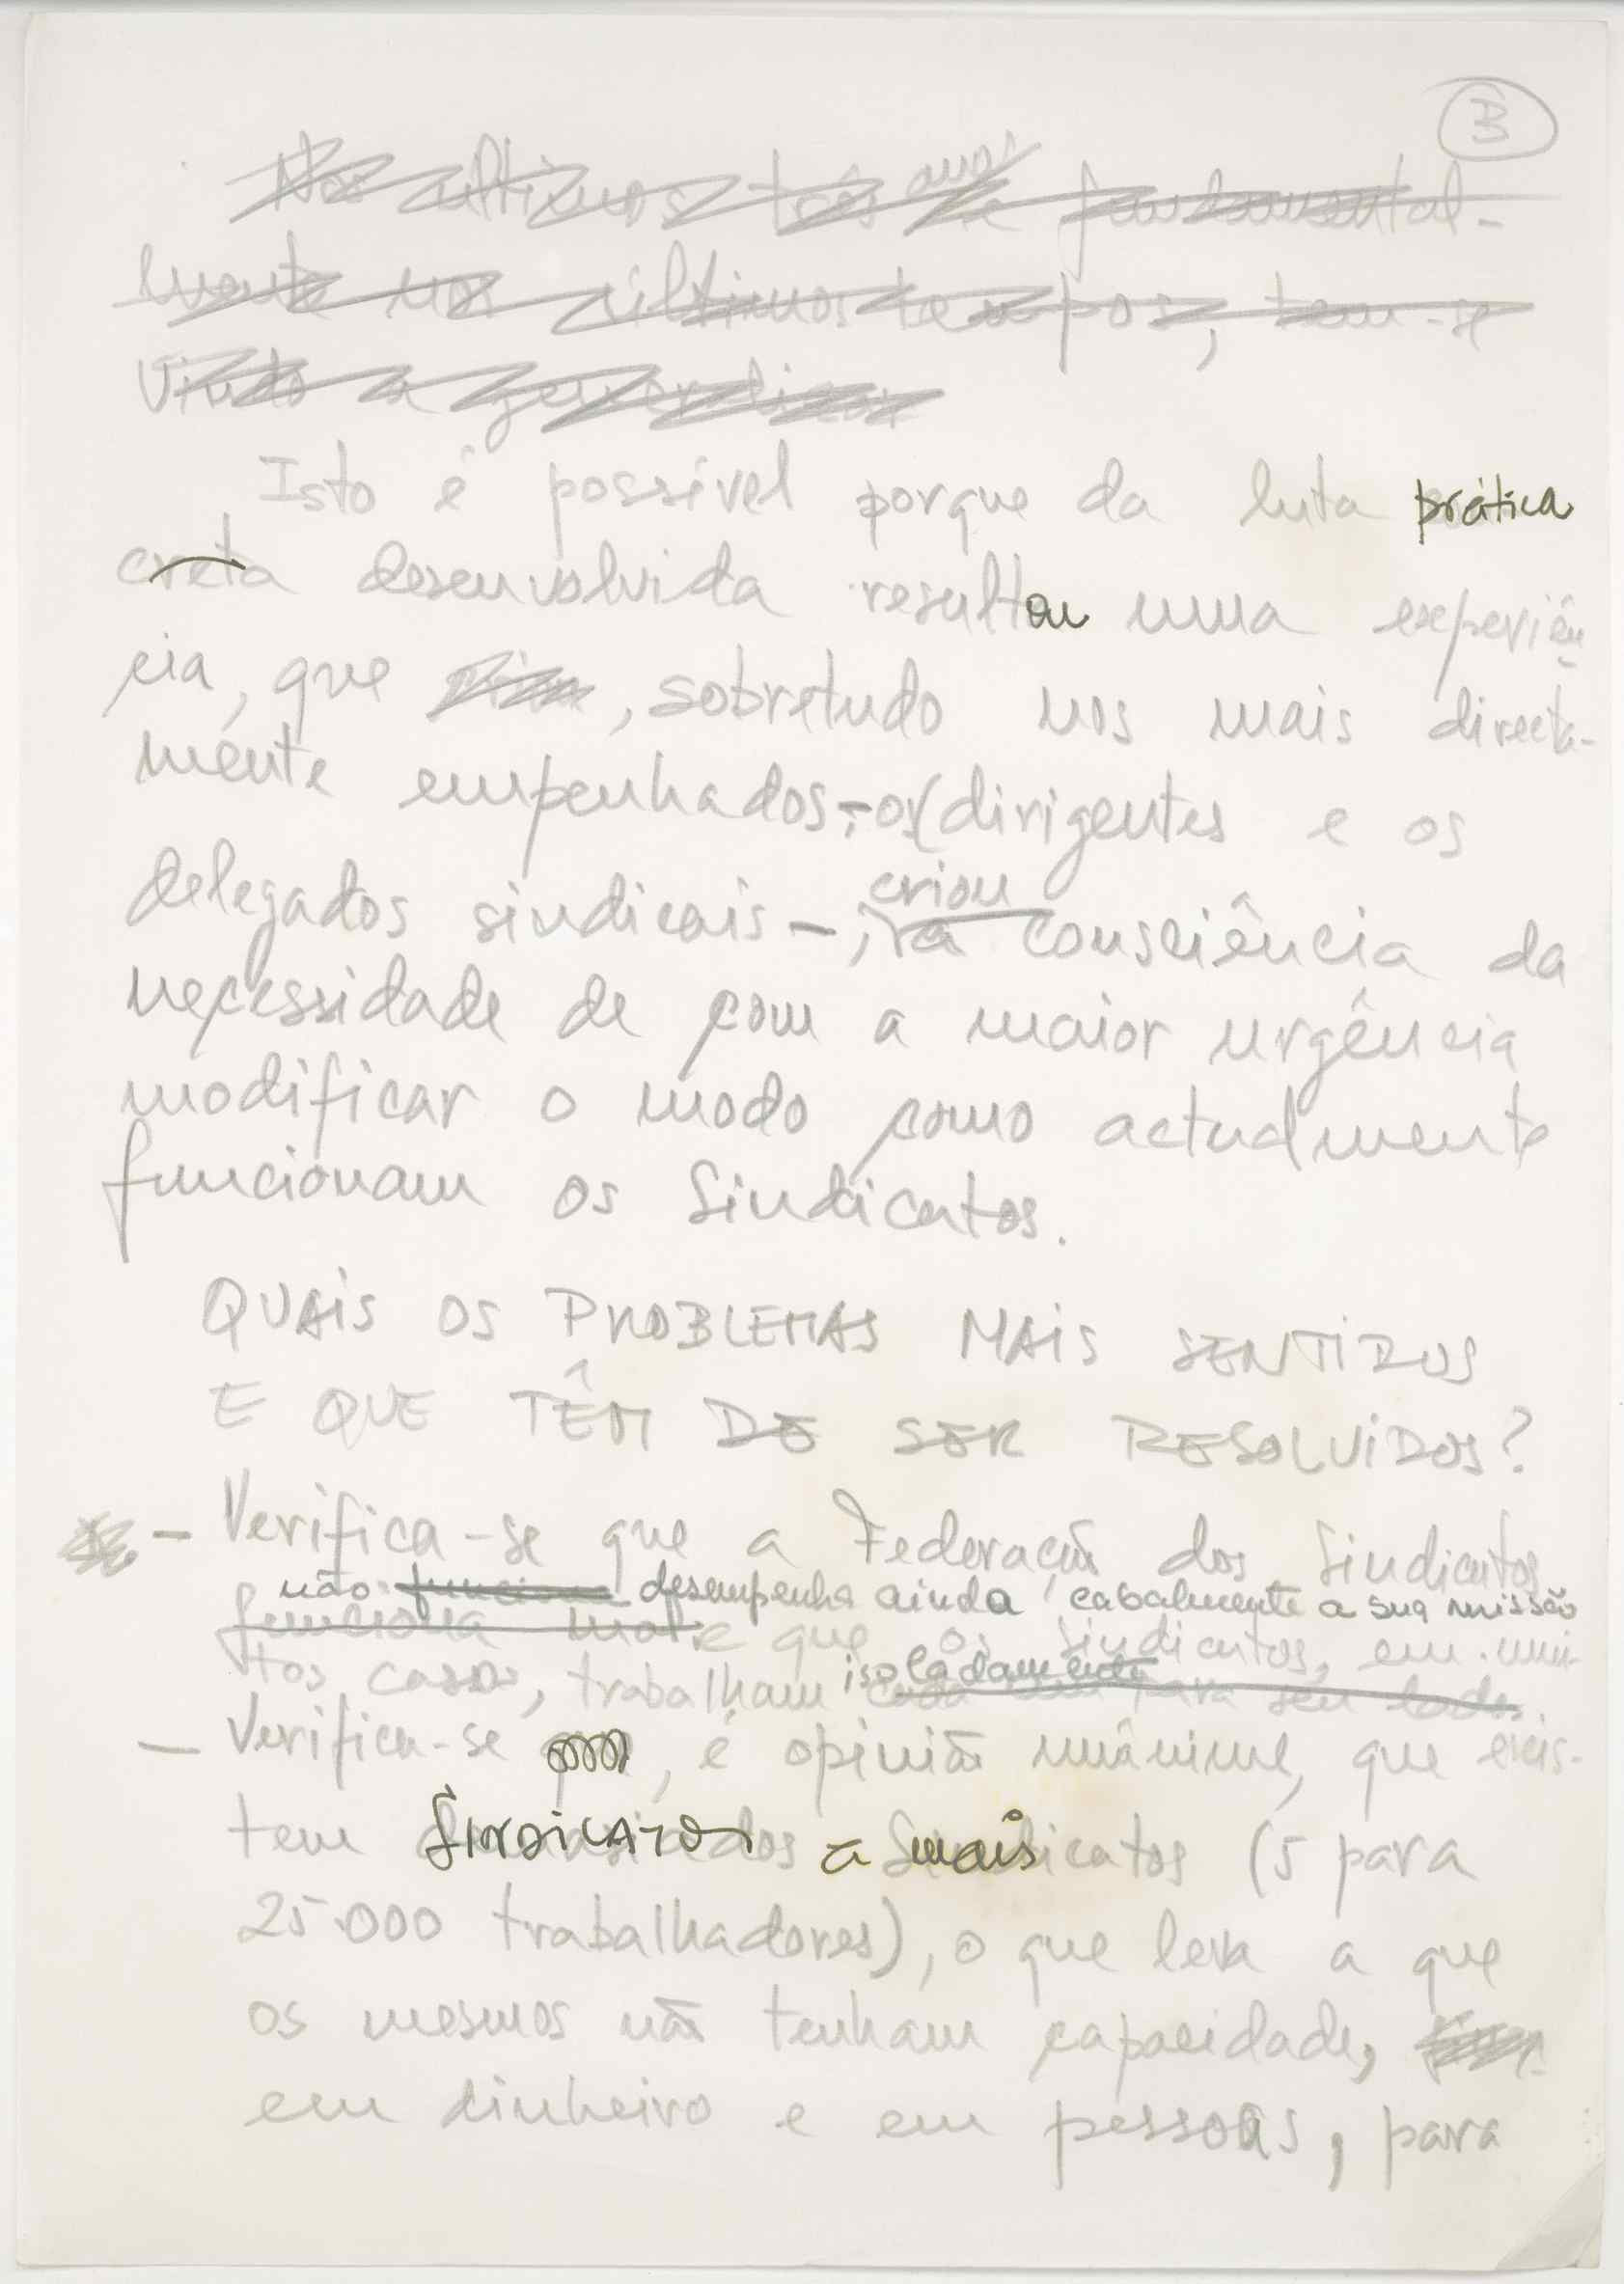 3
Nos últimos três anos e fundamental-
mente nos últimos tempos, tem-se
vindo a generalizar
Isto é possível porque da luta prática
creta desenvolvida resultou uma experiên
cia, que , sobretudo nos mais directa-
mente empenhados, - os (dirigentes e os
delegados sindicais - , criou a consciência da
necessidade de com a maior urgência
modificar o modo como actualmente
funcionam os Sindicatos.
QUAIS OS PROBLEMAS MAIS SENTIDOS
E QUE TÊM DE SER RESOLVIDOS?
- Verifica-se que a Federação dos Sindicatos
não funciona desempenha ainda cabalmente a sua missão
funciona mal e que os sindicatos, em mui-
tos casos, trabalham isoladamente cada um para seu lado.
- Verifica-se , é opinião unânime, que exis-
tem SINDICATOS a mais Sindicatos (5 para
25.000 trabalhadores), o que leva a que
os mesmos não tenham capacidade,
em dinheiro e em pessoas, para